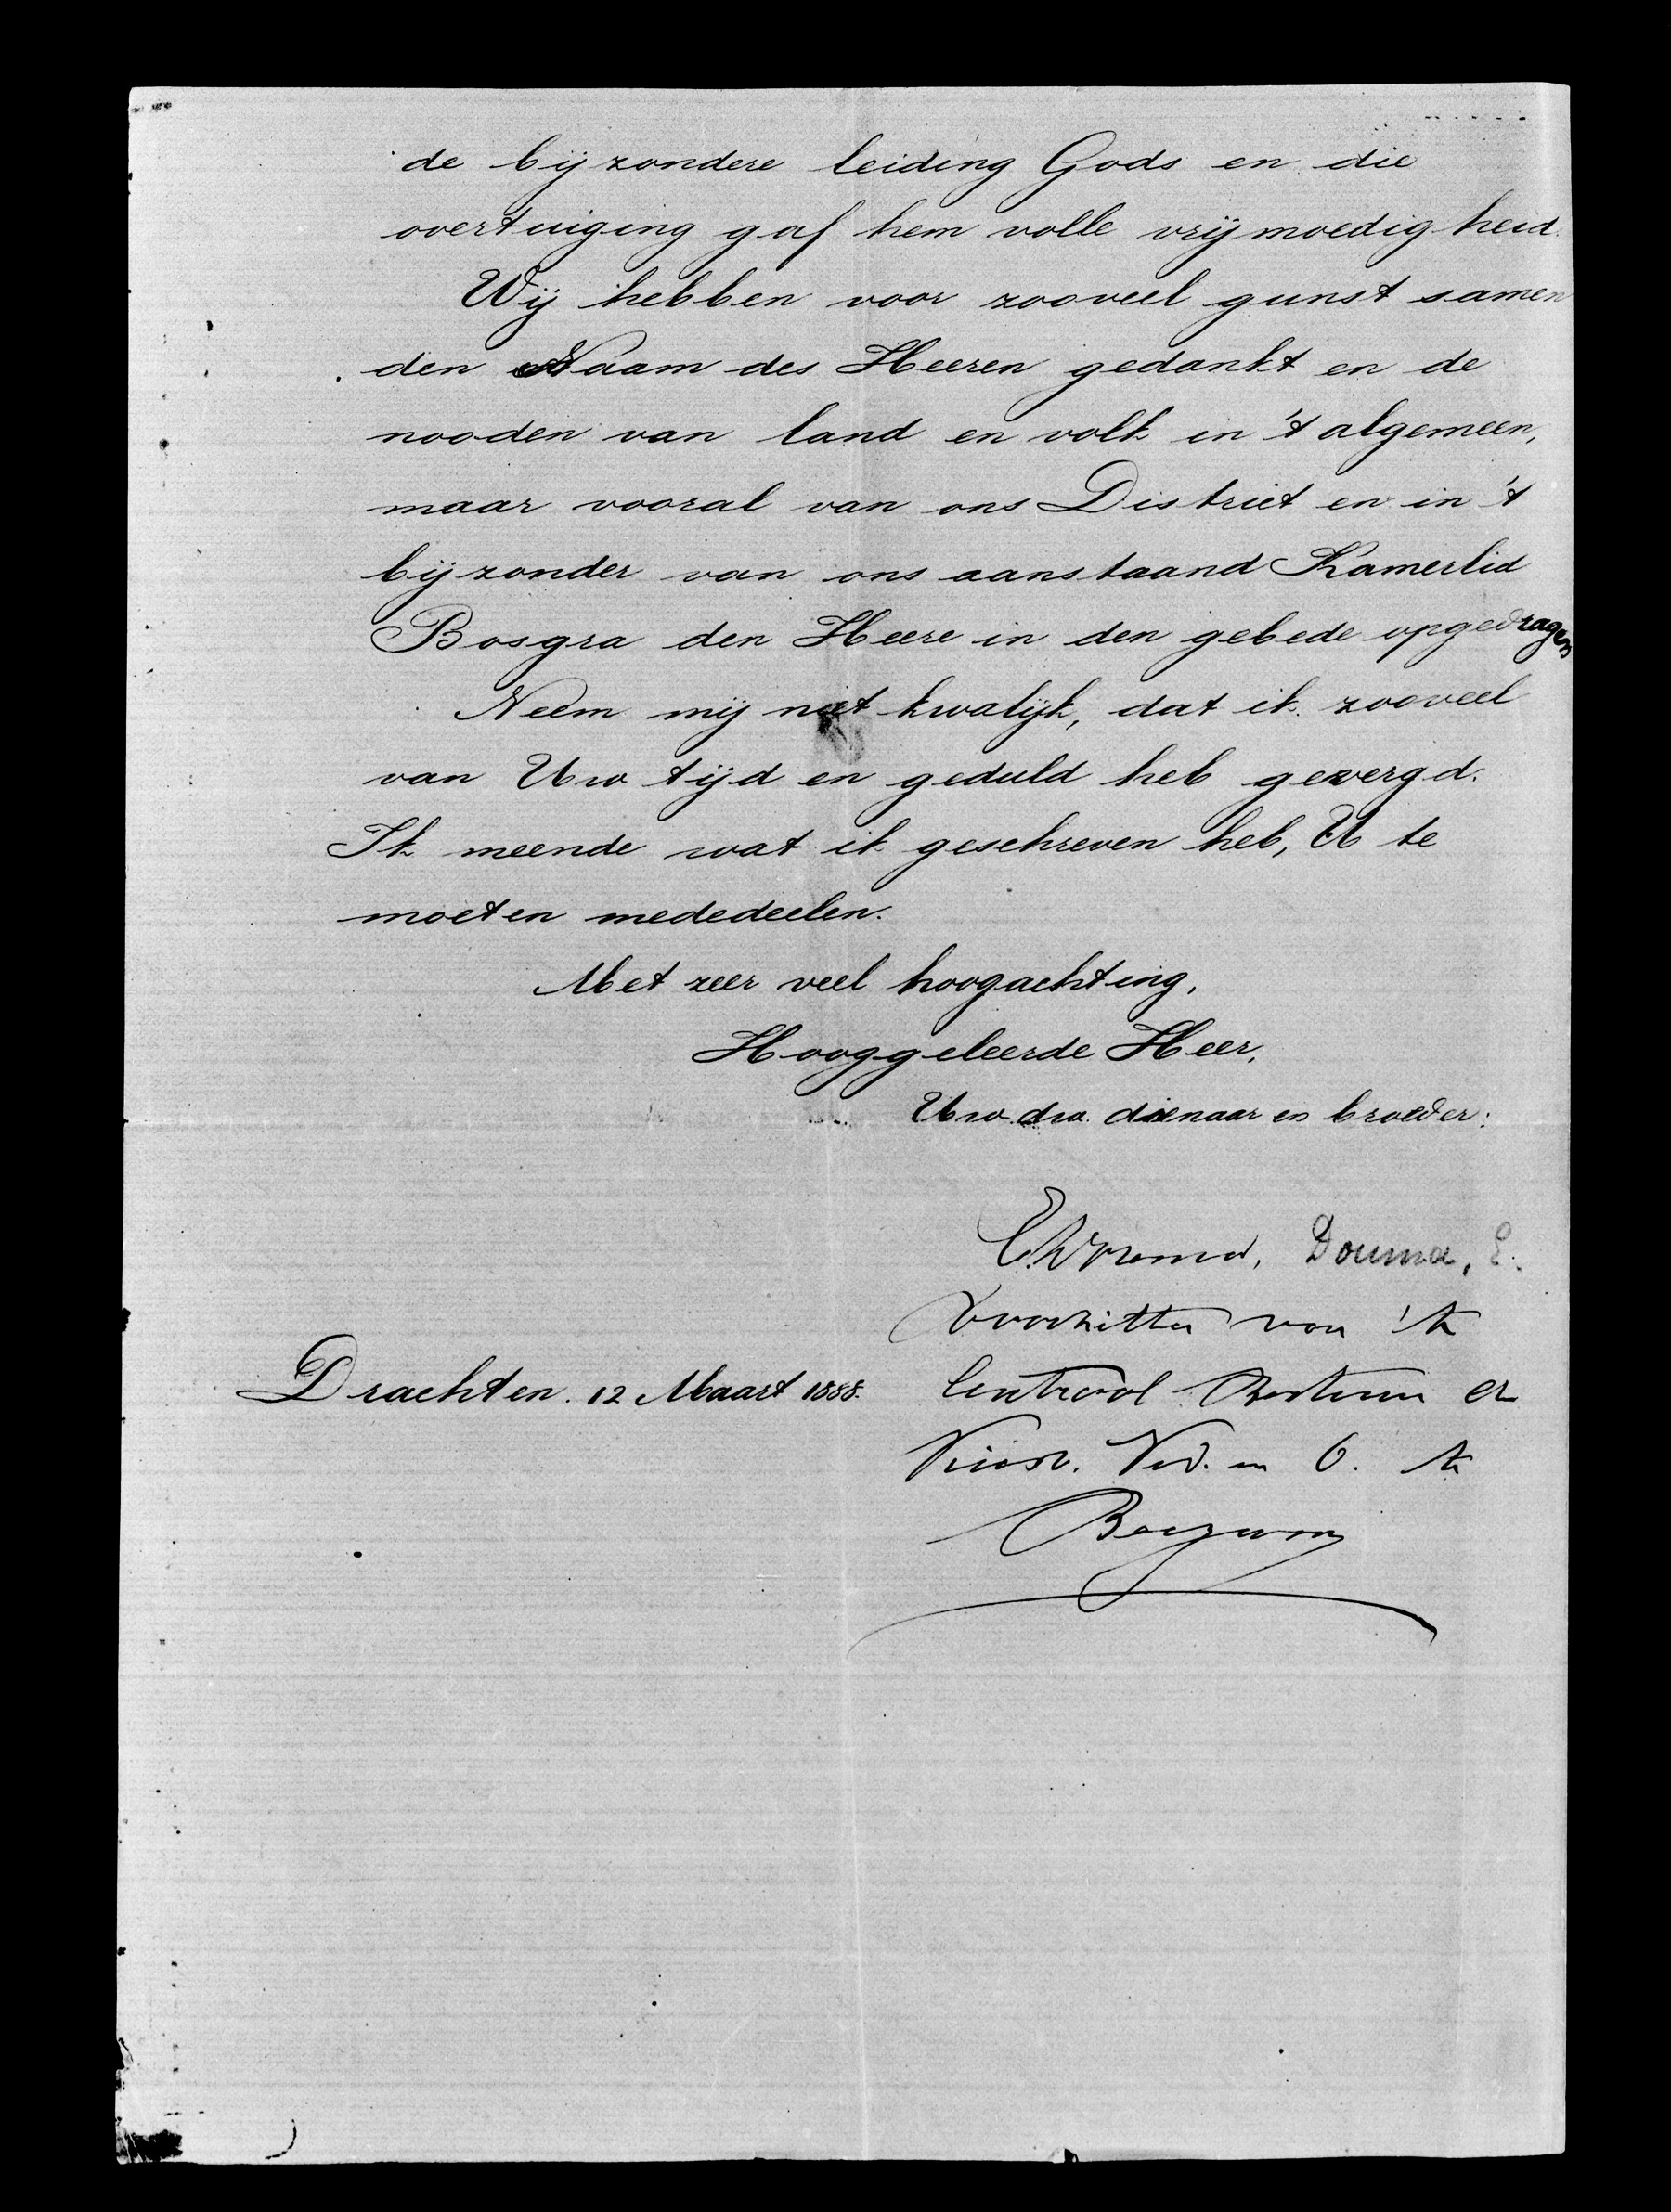 de bijzondere leiding Gods en die
overtuiging gaf hem volle vrijmoedigheid.
Wij hebben voor zooveel gunst samen
den Naam des Heeren gedankt en de
nooden van land en volk in 't algemeen,
maar vooral van ons District en in 't
bijzonder van ons aanstaand Kamerlid
Bosgra den Heere in den gebede opgedragen
Neem mij niet kwalijk, dat ik zooveel
van Uw tijd en geduld heb gevergd.
Ik meende wat ik geschreven heb, U te
moeten mededeelen.
Met zeer veel hoogachting,
Hooggeleerde Heer,
Uw dw. dienaar en broeder:
Douma, E.
Voorzitter van 't
Drachten. 12 Maart 1888.
Centraal Bestuur en
Ned.
Boazum